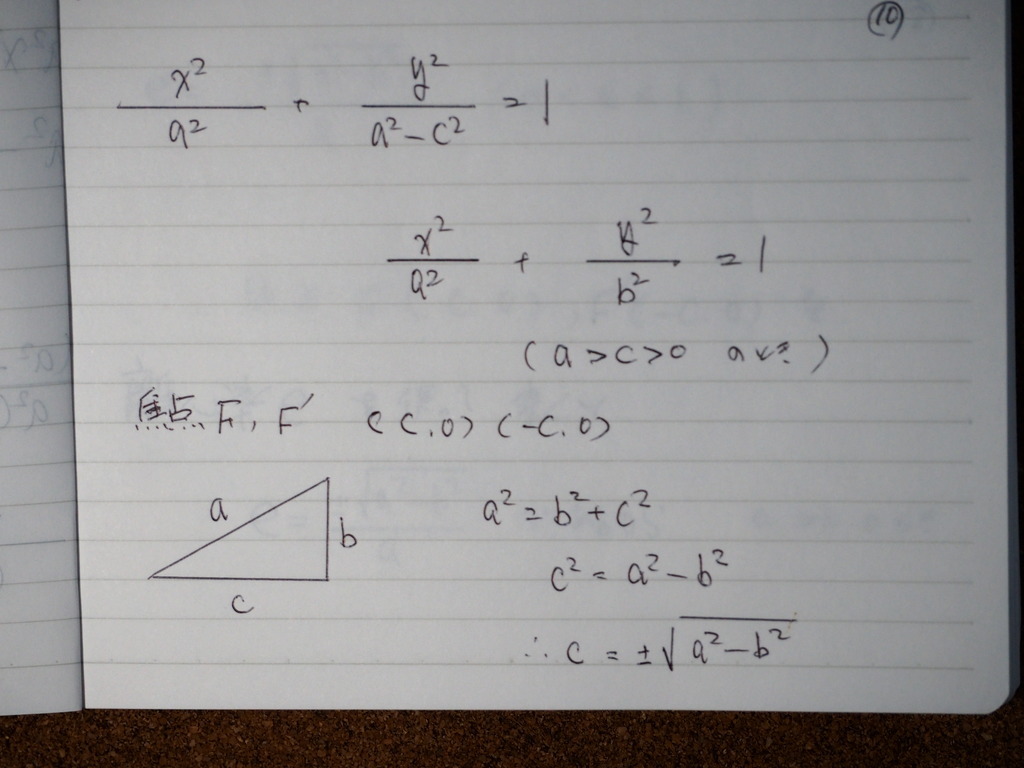 ⑩
x²/a² + y²/(a²-c²) = 1
x²/a² + y²/b² = 1
(a>c>0 aκ?)
焦点 F, F′ (c,0) (-c,0)
a
b
c
a² = b² + c²
c² = a² - b²
∴ c = ±√(a²-b²)